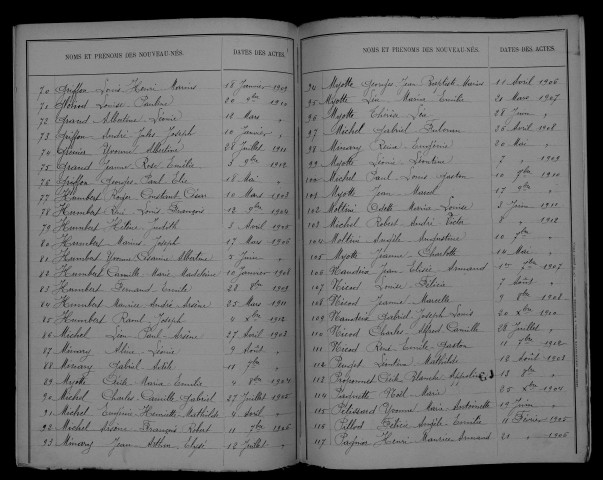 NOMS ET PRÉNOMS DES NOUVEAU-NÉS. DATES DES ACTES.
70 Griffon Louis Henri Marius 18 Janvier 1909
71 Louise Pauline 20 9bre 1910
72 Girard Albertine Léonie 12 Mars "
73 Griffon André Jules Joseph 10 Janvier "
74 Grenier Yvonne Albertine 28 Juillet 1910
75 Girard Jeanne Rose Emilie 8 9bre 1912
76 Griffon Georges Paul Elie 18 Mai "
77 Humbert Roger Constant César 10 Mars 1903
78 Humbert René Louis François 12 9bre 1904
79 Humbert Hélène Judith 3 Avril 1905
80 Humbert Marius Joseph 17 Mars 1906
81 Humbert Yvonne Albertine 5 Juin "
82 Humbert Camille Marie Madeleine 10 Janvier 1908
83 Humbert Fernand Emile 28 8bre 1909
84 Humbert Maurice André Arsène 25 Mars 1911
85 Humbert Raoul Joseph 4 Xbre 1912
86 Michel Léon Paul Arsène 27 Avril 1903
87 Aline Léonie 9 Août "
88 Gabriel 11 7bre "
89 Myotte Maria Emilie 4 8bre 1904
90 Michel Charles Camille Gabriel 27 Juillet 1905
91 Michel Eugénie Henriette Mathilde 4 Avril "
92 Michel Arsène François Robert 11 7bre 1906
93 Jean Arthur Elysé 12 Juillet "
NOMS ET PRÉNOMS DES NOUVEAU-NÉS. DATES DES ACTES.
94 Myotte Georges Jean Baptiste Marius 11 Avril 1906
95 Myotte Léa Maria Emilie 21 Mars 1907
96 Myotte Thérèsa Léa 28 Juin "
97 Michel Gabriel 26 Avril 1908
98 Reine Eugénie 20 Mai "
99 Myotte Léonie Léontine 7 " 1909
100 Michel Paul Louis Gaston 17 9bre "
101 Myotte Jean Marcel 17 " 1910
102 Odette Maria Louise 3 Juin 1911
103 Michel Robert André Victor 8 " 1912
104 Angèle Augustine 10 7bre "
105 Myotte Jeanne Charlotte 16 Mai "
106 Jean Elisée Armand 1er 7bre 1907
107 Nicod Louise Félicia 7 Août "
108 Nicod Jeanne Marcelle 9 8bre 1908
109 Gabriel Joseph Louis 20 Xbre 1910
110 Nicod Charles Albert Camille 28 Juillet "
111 Nicod René Emile Gaston 11 9bre 1912
112 Léontine Mathilde 12 Août 1903
113 Blanche 13 8bre "
114 Noël Marie 25 Xbre 1904
115 Pélissard Yvonne Marie Antoinette 19 Juin "
116 Pillot Félicie Angèle Emilie 11 Février 1905
117 Henri Maurice Armand 21 " 1906